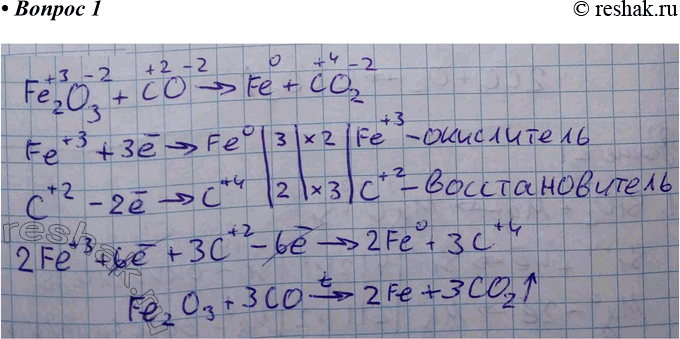 • Вопрос 1
© reshak.ru
Fe₂⁺³O₃⁻² + C⁺²O⁻² → Fe⁰ + C⁺⁴O₂⁻²
Fe⁺³ + 3ē → Fe⁰ | 3 | ×2 | Fe⁺³ - окислитель
C⁺² - 2ē → C⁺⁴ | 2 | ×3 | C⁺² - восстановитель
2Fe⁺³ + 6ē + 3C⁺² - 6ē → 2Fe⁰ + 3C⁺⁴
Fe₂O₃ + 3CO t→ 2Fe + 3CO₂↑
reshak.ru